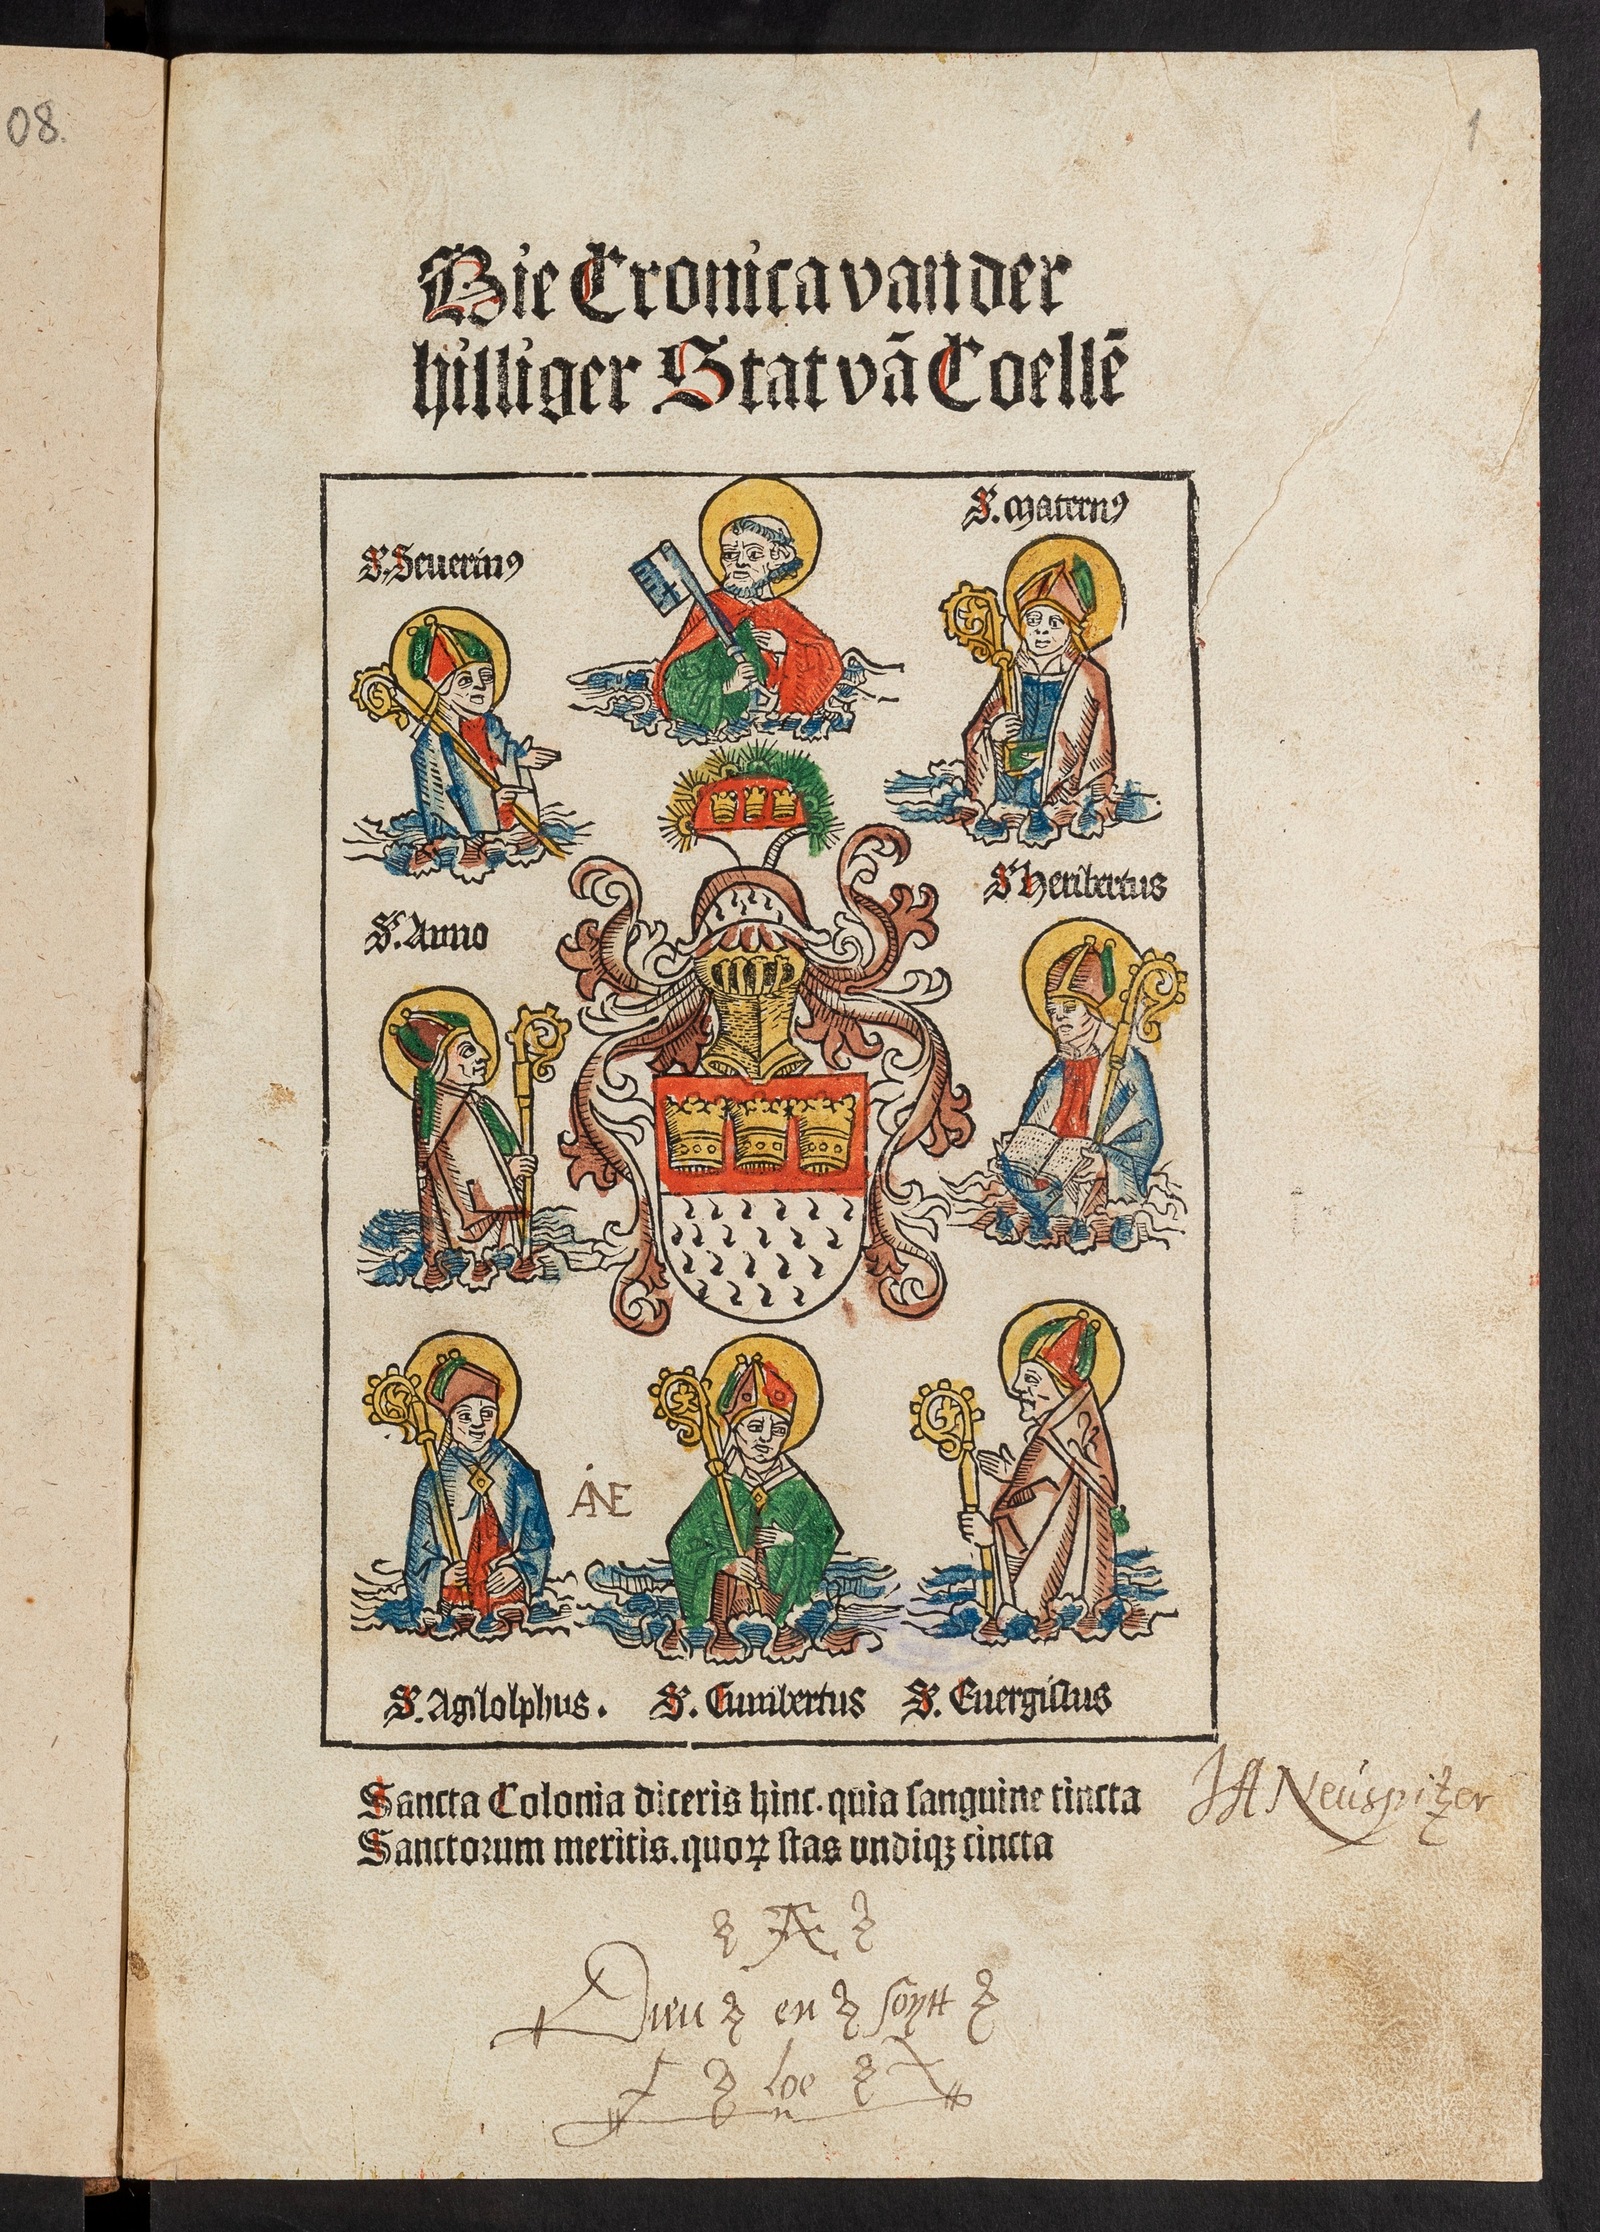 08.
1
Die Cronica van der
hilliger Stat vā Coellē
S. Maternꝰ
S. Seuerinꝰ
S. Heribertus
S. Anno
ANE
S. Agilolphus. S. Cunibertus S. Euergislus
Sancta Colonia diceris hinc. quia sanguine tincta
Sanctorum meritis. quoꝝ stas vndiqꝫ cincta
Neuspitzer
Dieu en soytt
loe